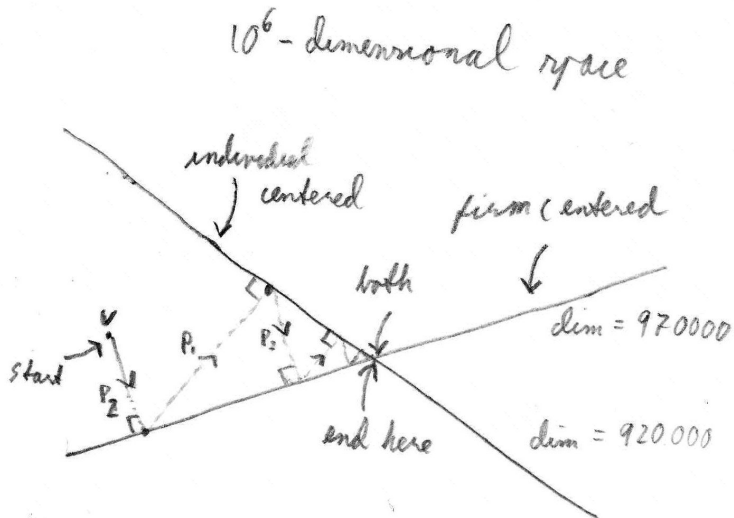 10^6-dimensional space
individual
centered
firm centered
both
dim = 970000
v
start
P2
P1
P2
end here
dim = 920000